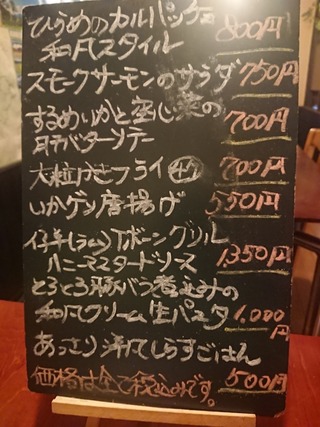 ひらめのカルパッチョ
和風スタイル 800円
スモークサーモンのサラダ 750円
するめいかと空心菜の
肝バターソテー 700円
大粒かきフライ 700円
いかゲソ唐揚げ 550円
仔羊(ラム)Tボーングリル
ハニーマスタードソース 1,350円
とろとろ豚バラ煮込みの
和風クリーム生パスタ 1,000円
あっさり洋風しらすごはん
500円
価格は全て税込みです。